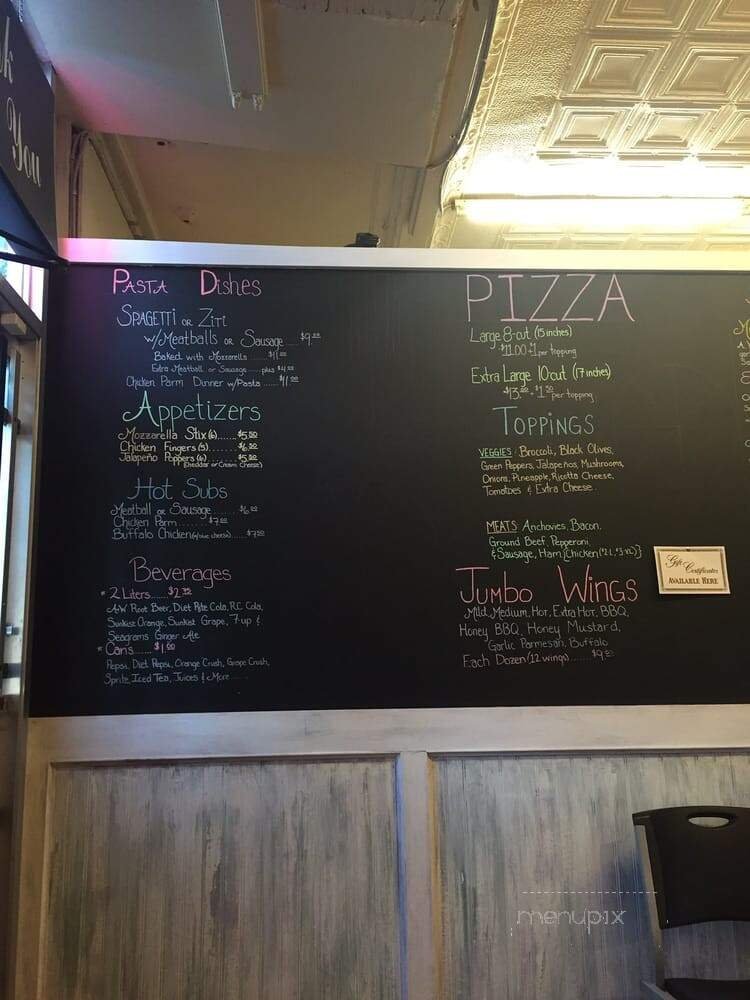 k
You
PASTA DISHES
SPAGETTI OR ZITI
W/MEATBALLS OR SAUSAGE ...$9
BAKED WITH MOZZARELLA ......$11.00
EXTRA MEATBALL OR SAUSAGE......PLUS $4.00
CHICKEN PARM DINNER W/PASTA ......$11.00
APPETIZERS
MOZZARELLA STIX (6).......$5.50
CHICKEN FINGERS (5)........$6.50
JALAPEÑO POPPERS (6)........$5.50
(CHEDDAR OR CREAM CHEESE)
HOT SUBS
MEATBALL OR SAUSAGE.......$6.00
CHICKEN PARM........$7.00
BUFFALO CHICKEN(W/BLUE CHEESE).....$7.50
BEVERAGES
* 2 LITERS......$2
A&W ROOT BEER, DIET RITE COLA, R.C. COLA,
SUNKIST ORANGE, SUNKIST GRAPE, 7-UP &
SEAGRAMS GINGER ALE
* CAN'S......$1.00
PEPSI, DIET PEPSI, ORANGE CRUSH, GRAPE CRUSH,
SPRITE, ICED TEA, JUICES & MORE
PIZZA
LARGE 8-CUT (15 INCHES)
$11.00 + 1 PER TOPPING
EXTRA LARGE 10CUT (17 INCHES)
$13. + $1.50 PER TOPPING
TOPPINGS
VEGGIES: BROCCOLI, BLACK OLIVES,
GREEN PEPPERS, JALAPEÑOS, MUSHROOMS,
ONIONS, PINEAPPLE, RICOTTA CHEESE,
TOMATOES & EXTRA CHEESE.
MEATS: ANCHOVIES, BACON,
GROUND BEEF, PEPPERONI,
& SAUSAGE, HAM, {CHICKEN (*2-L, *3-XL)}
Gift
Certificates
AVAILABLE HERE
JUMBO WINGS
MILD, MEDIUM, HOT, EXTRA HOT, BBQ,
HONEY BBQ, HONEY MUSTARD,
GARLIC PARMESAN, BUFFALO
EACH DOZEN (12 WINGS).......$9
menupix